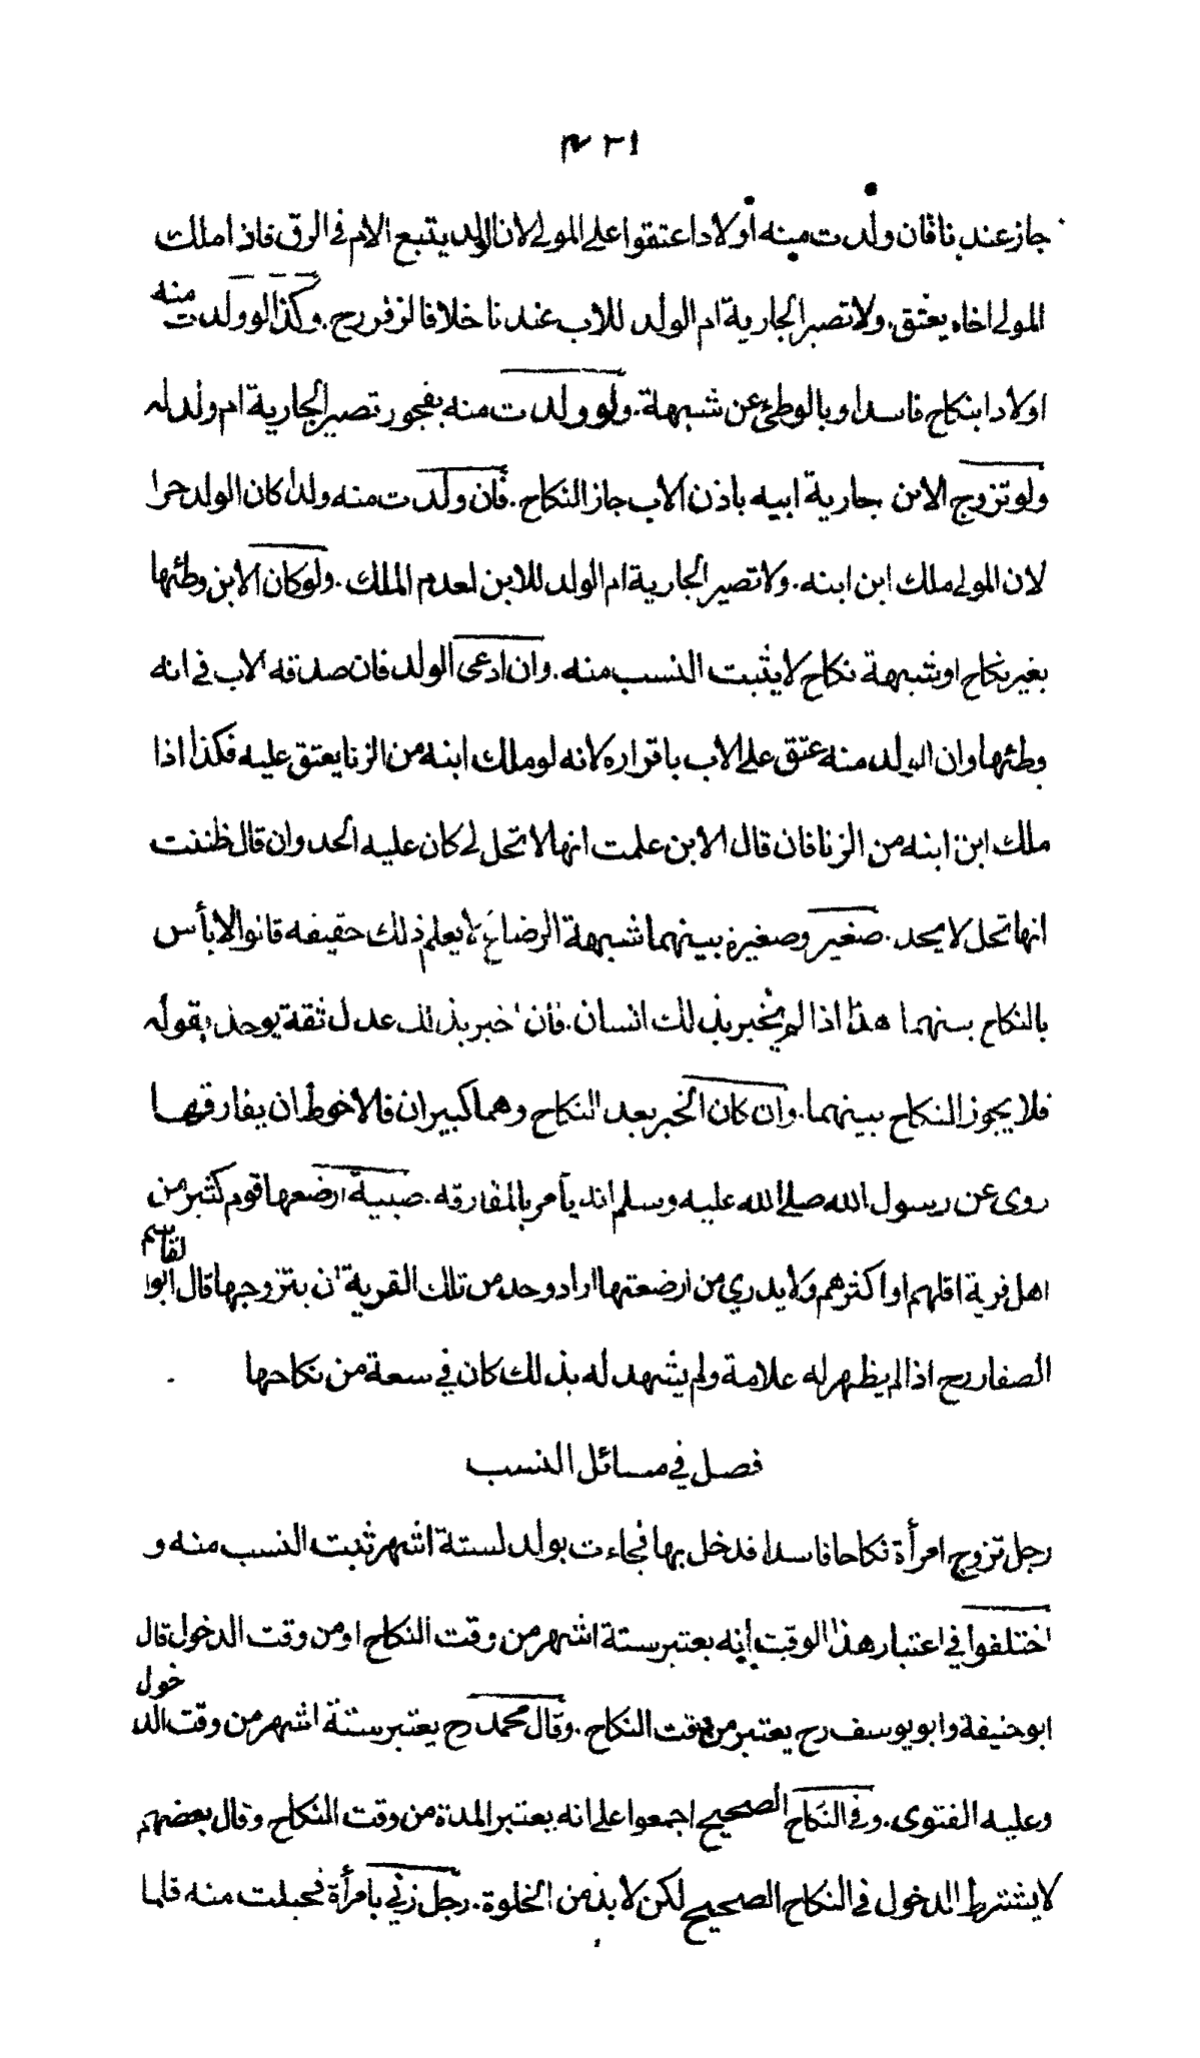 جاز عندنا فان ولدت منه أولادا عتقوا على المولى لان الولد يتبع الام فى الرق فاذا ملك
المولى اخاه يعتق. ولا تصير الجارية ام الولد للاب عندنا خلافا لزفر رح. وكذا لو ولدت منه
اولادا بنكاح فاسد او بالوطئ عن شبهة. ولو ولدت منه بفجور تصير الجارية ام ولد له
ولو تزوج الابن جارية ابيه باذن الاب جاز النكاح. فان ولدت منه ولدا كان الولد حرا
لان المولى ملك ابن ابنه. ولا تصير الجارية ام الولد للابن لعدم الملك. ولو كان الابن وطئها
بغير نكاح او شبهة نكاح لا يثبت النسب منه. وان ادعى الولد فان صدقه الاب فى انه
وطئها وان الولد منه عتق على الاب باقراره لانه لو ملك ابنه من الزنا يعتق عليه فكذا اذا
ملك ابن ابنه من الزنا فان قال الابن علمت انها لا تحل لى كان عليه الحد وان قال ظننت
انها تحل لا يحد. صغير وصغيرة بينهما شبهة الرضاع لا يعلم ذلك حقيقه قالوا لا بأس
بالنكاح بينهما هذا اذا لم يخبر بذلك انسان. فان اخبر بذلك عدل ثقة يوخذ بقوله
فلا يجوز النكاح بينهما. وان كان الخبر بعد النكاح وهما كبيران فالاحوط ان يفارقها
روى عن رسول الله صلى الله عليه وسلم انه يأمر بالمفارقه. صبية ارضعها قوم كثير من
اهل قرية اقلهم او اكثرهم ولا يدري من ارضعتها اراد وحد من تلك القرية ان يتزوجها قال ابو القاسم
الصفار رح اذا لم يظهر له علامة ولم يشهد له بذلك كان في سعة من نكاحها
فصل في مسائل النسب
رجل تزوج امرأة نكاحا فاسدا فدخل بها فجاءت بولد لستة اشهر ثبت النسب منه و
اختلفوا في اعتبار هذا الوقت انه يعتبر ستة اشهر من وقت النكاح او من وقت الدخول قال
ابو حنيفة وابو يوسف رح يعتبر من وقت النكاح. وقال محمد رح يعتبر ستة اشهر من وقت الدخول
وعليه الفتوى. وفى النكاح الصحيح اجمعوا على انه يعتبر المدة من وقت النكاح وقال بعضهم
لا يشترط الدخول فى النكاح الصحيح لكن لا بد من الخلوة. رجل زنى بامرأة فحبلت منه فلما